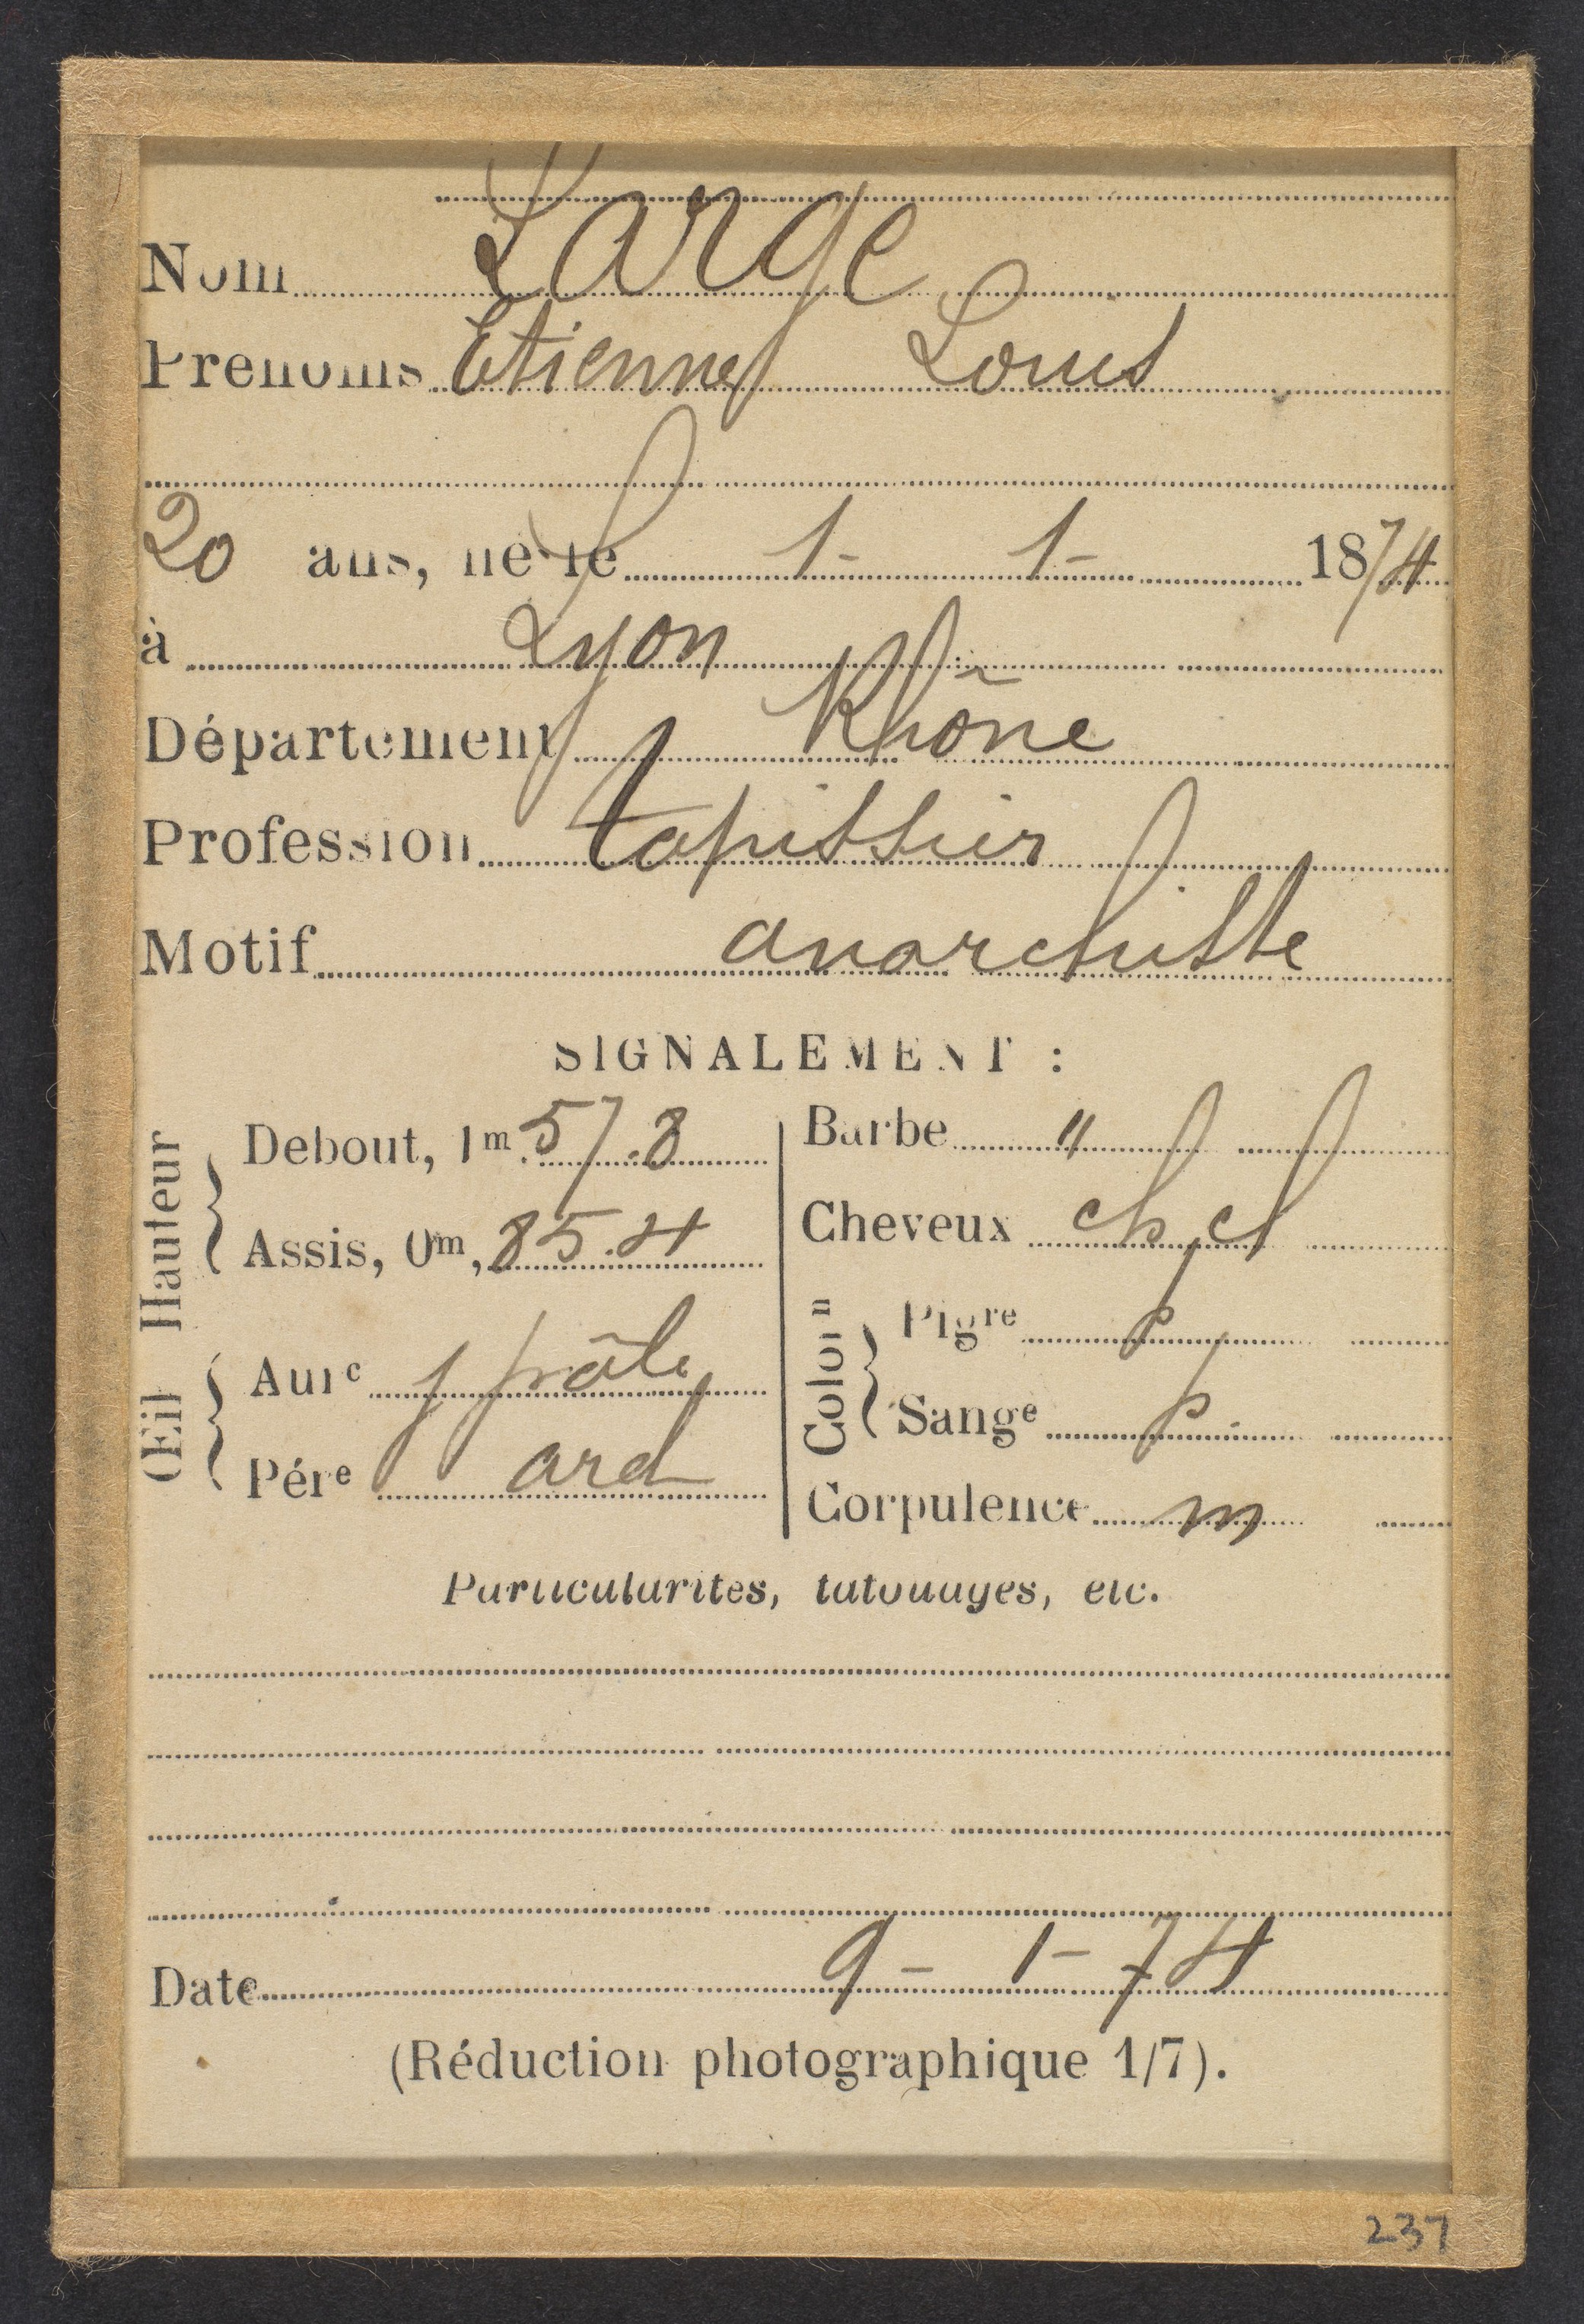 Large
Nom
Prénoms Etienne Louis
20 ans, né le 1- 1- 1874
à Lyon
Département Rhône
Profession tapissier
Motif anarchiste
SIGNALEMENT :
Hauteur
Debout, 1m.57.8
Assis, 0m,85.4
Œil
Aure j pâle
Pére ard
Barbe "
Cheveux ch cl
Colon
Pigre p
Sange p.
Corpulence m
Particularités, tatouages, etc.
Date 9- 1- 74
(Réduction photographique 1/7).
237